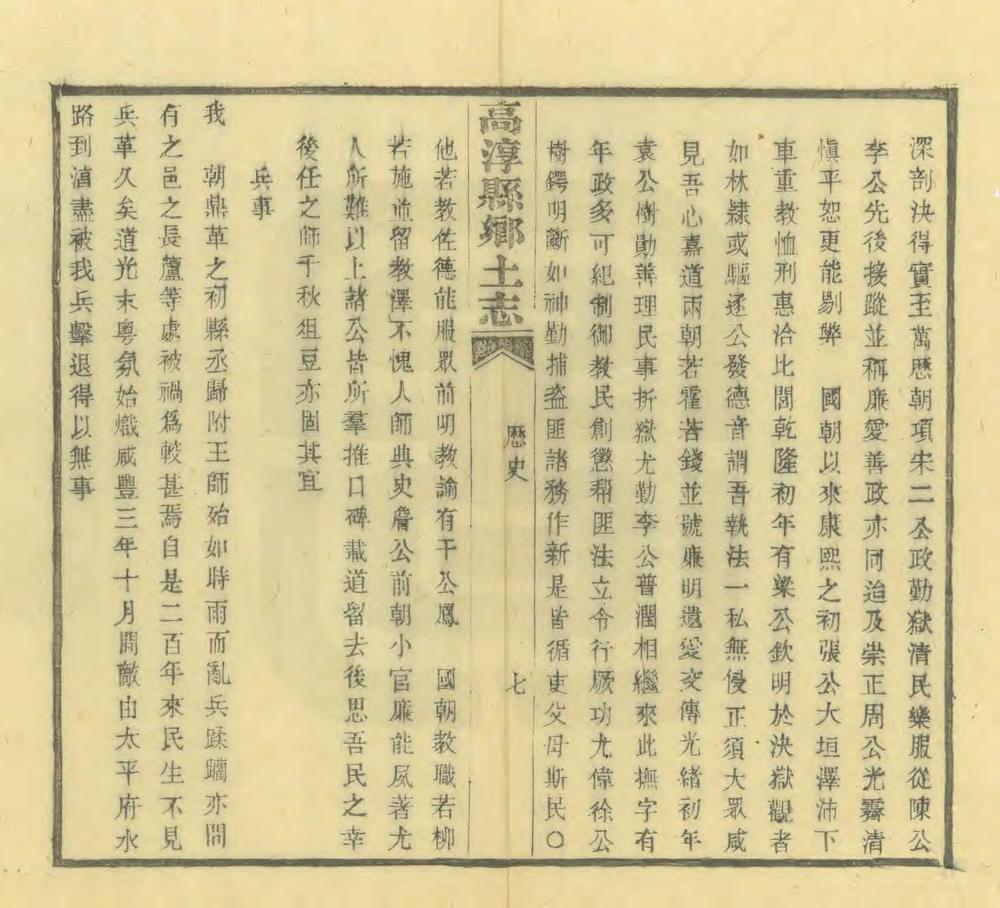 深剖決得實至萬歷朝項朱二公政勤獄清民樂服從陳公
李公先後接蹤並稱廉愛善政亦同迨及崇正周公光霽清
愼平恕更能剔弊　國朝以來康熙之初張公大垣澤沛下
車重教恤刑惠洽比閭乾隆初年有梁公欽明於決獄觀者
如林隸或驅逐公發德音謂吾執法一私無侵正須大眾咸
見吾心嘉道兩朝若霍若錢並號廉明遺愛交傳光緒初年
袁公樹勛善理民事折獄尤勤李公普潤相繼來此撫字有
年政多可紀制御教民創懲幫匪法立令行厥功尤偉徐公
樹鍔明斷如神勤捕盜匪諸務作新是皆循吏父母斯民〇
高淳縣鄉土志
歷史
七
他若教佐德能服眾前明教諭有于公鳳　國朝教職若柳
若施並留教澤不愧人師典史詹公前朝小官廉能夙著尤
人所難以上諸公皆所羣推口碑載道留去後思吾民之幸
後任之師千秋俎豆亦固其宜
兵事
我　朝鼎革之初縣丞歸附王師殆如時雨而亂兵蹂躪亦間
有之邑之長蘆等處被禍爲較甚焉自是二百年來民生不見
兵革久矣道光末粤氛始熾咸豐三年十月間敵由太平府水
路到湻盡被我兵擊退得以無事